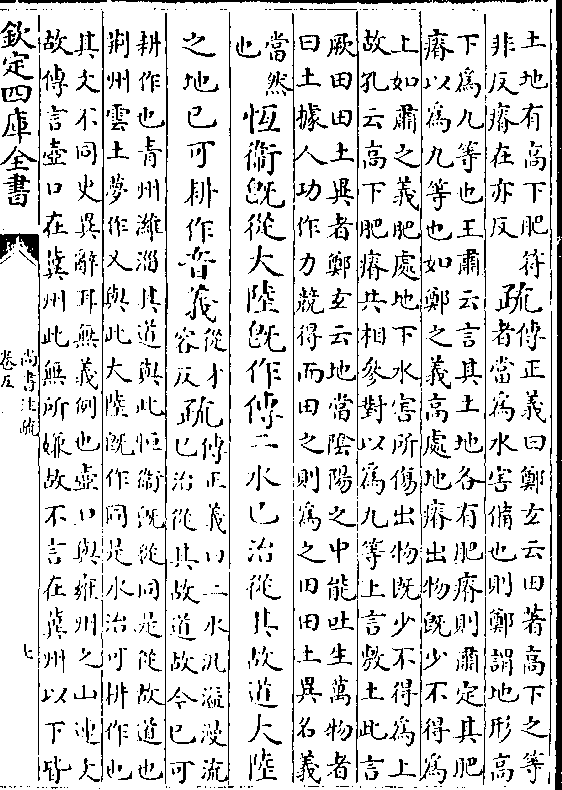 土地有高下肥符
非反瘠在亦反
疏
傳正義曰鄭玄云田著高下之等
者當為水害備也則鄭謂地形高
下為九等也王肅云言其土地各有肥瘠則肅定其肥
瘠以為九等也如鄭之義高處地瘠出物既少不得為
上如肅之義肥處地下水害所傷出物既少不得為上
故孔云高下肥瘠共相參對以為九等上言敷土此言
厥田田土異者鄭玄云地當陰陽之中能吐生萬物者
曰土據人功作力競得而田之則為之田田土異名義
當然
也
恆衞既從大陸既作傳二水已治從其故道大陸
之地已可耕作音義
從才
容反
疏
傳正義曰二水汎溢漫流
已治從其故道故今已可
耕作也青州濰淄其道與此恒衞既從同是從故道也
荆州雲土夢作乂與此大陸既作同是水治可耕作也
其文不同史異辭耳無義例也壺口與雍州之山連文
故傳言壺口在冀州此無所嫌故不言在冀州以下皆
欽定四庫全書
尚書注疏
卷五
七